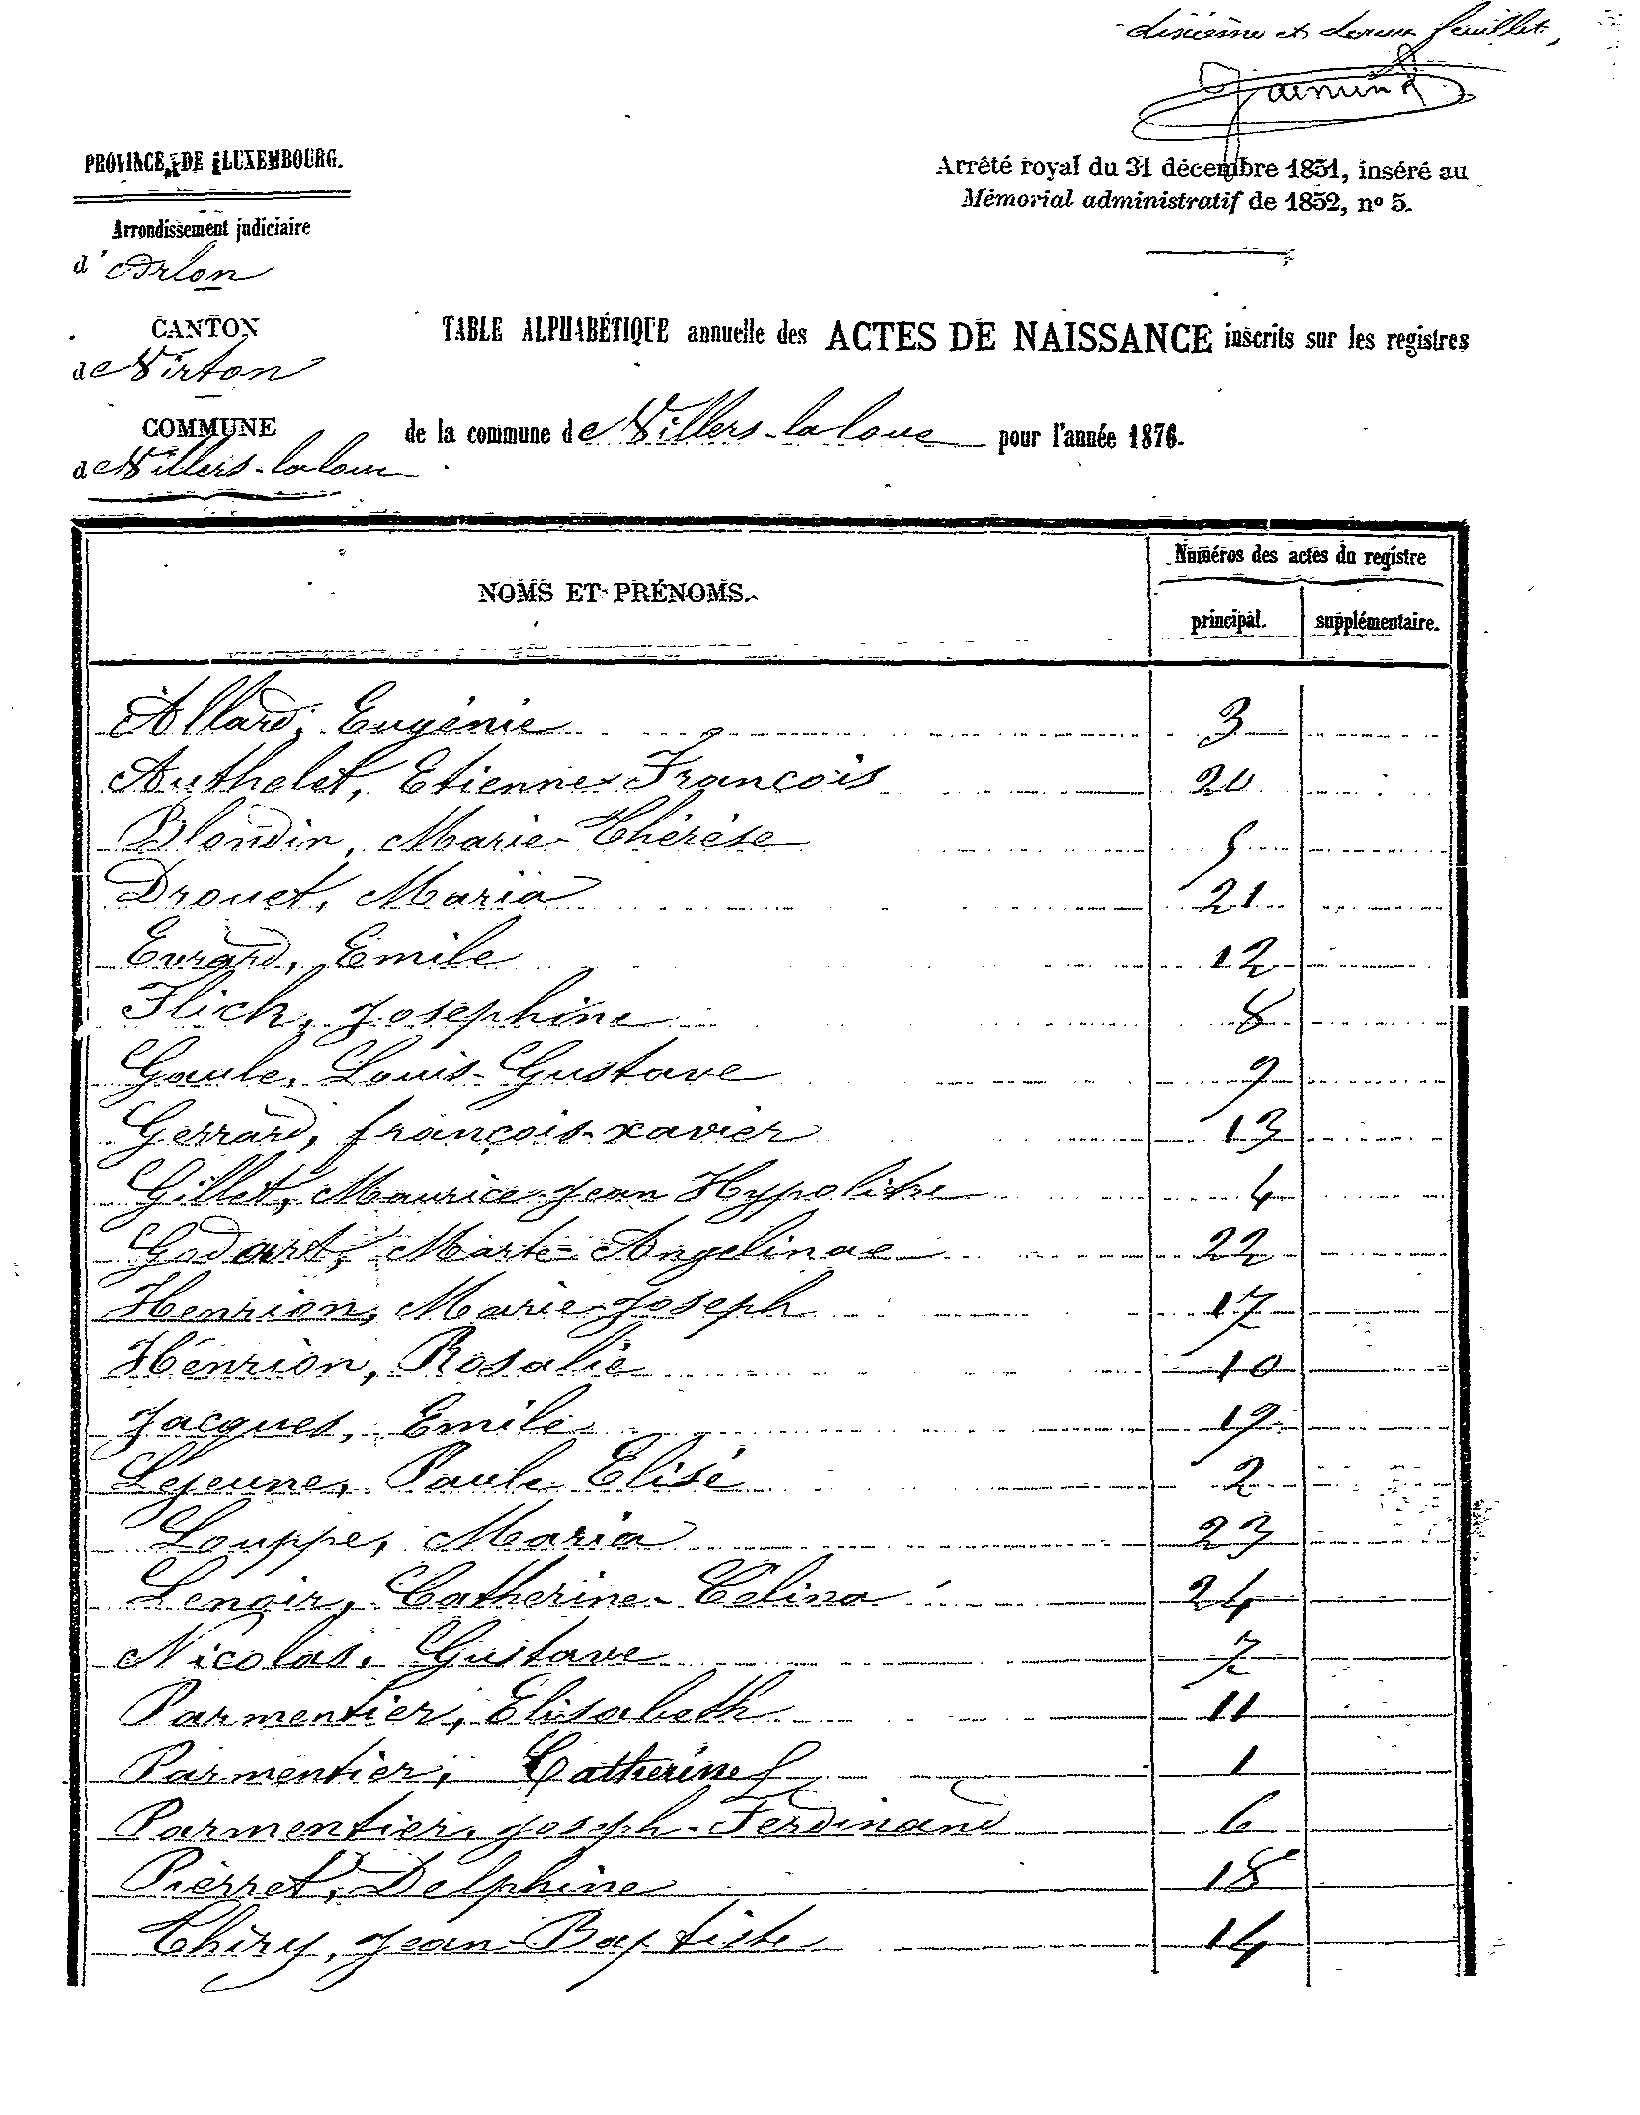 dixième et dernier feuillet,
PROVINCE DE LUXEMBOURG.
Arrêté royal du 31 décembre 1851, inséré au
Mémorial administratif de 1852, no 5.
Arrondissement judiciaire
d'Arlon
CANTON
de Virton
COMMUNE
de Villers-la loue
TABLE ALPHABÉTIQUE annuelle des ACTES DE NAISSANCE inscrits sur les registres
de la commune de Villers-la loue pour l'année 1876.
NOMS ET PRÉNOMS.
Numéros des actes du registre
principal. supplémentaire.
Allard, Eugénie 3
Authelet, Etienne François 20
Blondin, Marie-Thérèse 5
Drouet, Maria 21
Evrard, Emile 12
Flick, Josephine 8
Gaule, Louis-Gustave 9
Gerrard, françois-xavier 13
Gillet, Maurice-Jean Hypolitre 4
Godart, Marie-Angelinae 22
Henrion, Marie-Joseph 17
Henrion, Rosalie 10
Jacques, Emile 19
Lejeune, Paule Elisé 2
Louppe, Maria 23
Lenoir, Catherine-Célina 24
Nicolas, Gustave 7
Parmentier, Elisabeth 11
Parmentier, Catherine 1
Parmentier, Joseph-Ferdinand 6
Pierret, Delphine 18
Thiry, Jean-Baptiste 14